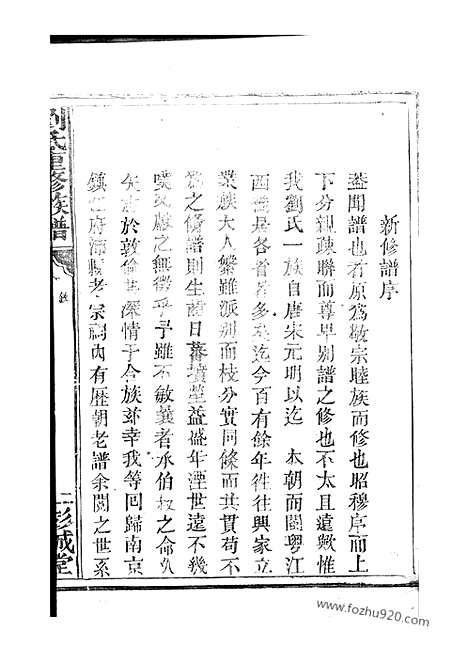 新修譜序
蓋聞譜也者原為敬宗睦族而修也昭穆序而上
下分親疎聯而尊卑別譜之修也不大且遠歟惟
我劉氏一族自唐宋元明以迄 本朝而閩粵江
西 是各省 多 迄今百有餘年徃往興家立
業族大人繁雖派別而枝分實同條而共貫苟不
為之修譜則生齒日蕃墳塋益盛年湮世遠不幾
嘆文獻之無徵乎予雖不敏曩者承伯叔之命久
矢志於敦倫 深情于合族玆幸我等回歸南京
鎮江府 縣老宗祠內有歷朝老譜余閱之世系
劉氏重修族譜
序
一
彭城堂
www.fozhu920.com